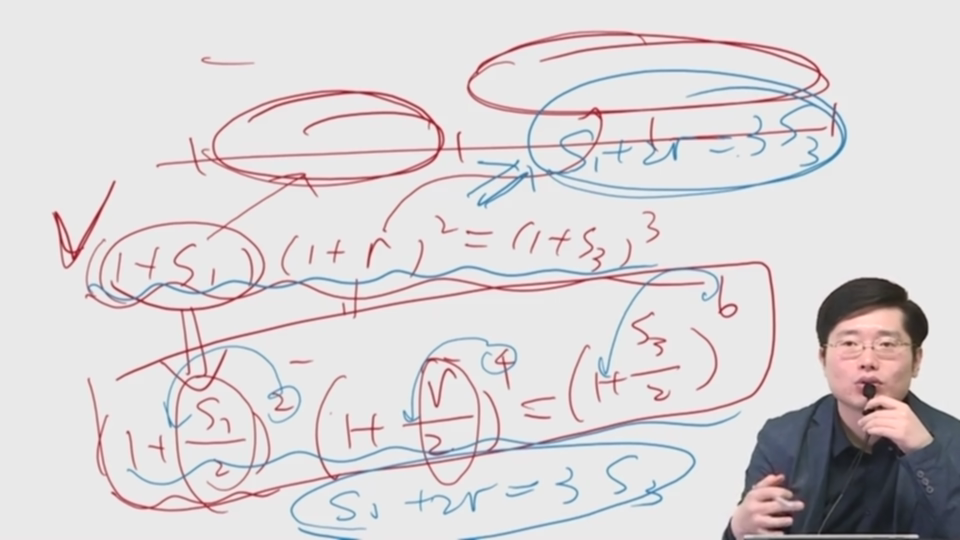 S₁+2r=3S₃
(1+S₁)(1+r)²=(1+S₃)³
(1+S₁/2)²(1+r/2)⁴=(1+S₃/2)⁶
S₁+2r=3S₃